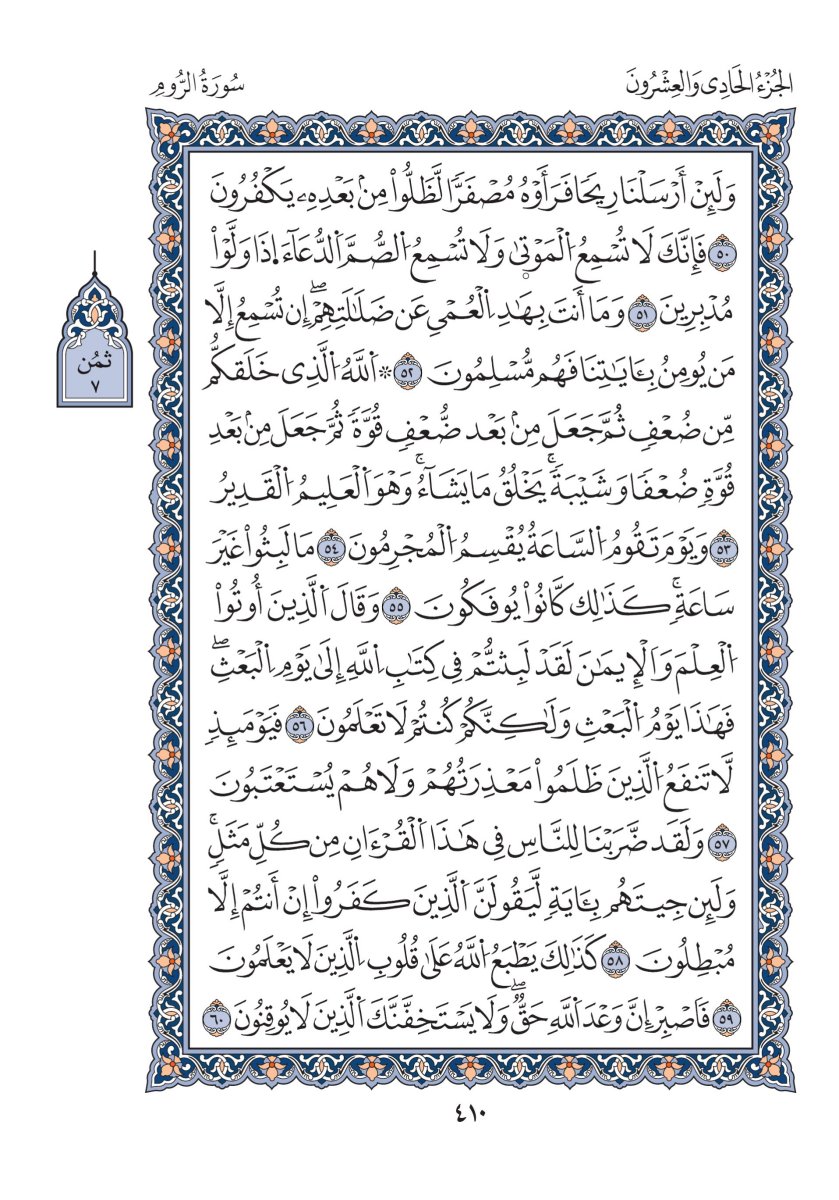 الجُزْءُ الحَادِى وَالعِشْرُونَ
سُورَةُ الرُّومِ
وَلَئِنْ أَرْسَلْنَا رِيحًا فَرَأَوْهُ مُصْفَرًّا لَّظَلُّواْ مِنۢ بَعْدِهِۦ يَكْفُرُونَ
٥٠ فَإِنَّكَ لَا تُسْمِعُ اُ۬لْمَوْتٜىٰ وَلَا تُسْمِعُ اُ۬لصُّمَّ اَ۬لدُّعَآءَ اِ۪ذَا وَلَّوْاْ
مُدْبِرِينَ ٥١ وَمَآ أَنتَ بِهَٰدِ اِ۬لْعُمْيِ عَن ضَلَٰلَتِهِمُۥٓۖ إِن تُسْمِعُ إِلَّا
مَن يُومِنُ بِـَٔايَٰتِنَا فَهُم مُّسْلِمُونَ ٥٢ ۞ اَ۬للَّهُ اُ۬لَّذِى خَلَقكُّم
مِّن ضُعْفٖ ثُمَّ جَعَلَ مِنۢ بَعْد ضُّعْفٖ قُوَّةٗ ثُمَّ جَعَلَ مِنۢ بَعْدِ
قُوَّةٖ ضُعْفٗا وَشَيْبَةٗۚ يَخْلُقُ مَا يَشَآءُۚ وَهْوَ اَ۬لْعَلِيمُ اُ۬لْقَدِيرُ
٥٣ وَيَوْمَ تَقُومُ اُ۬لسَّاعَةُ يُقْسِمُ اُ۬لْمُجْرِمُونَ ٥٤ مَا لَبِثُواْ غَيْرَ
سَاعَةٖۚ كَذَٰلِك كَّانُواْ يُوفَكُونَ ٥٥ وَقَالَ اَ۬لَّذِينَ أُوتُواْ
اُ۬لْعِلْمَ وَالْإِيمَٰنَ لَقَدْ لَبِثتُّمْ فِى كِتَٰبِ اِ۬للَّهِ إِلَىٰ يَوْمِ اِ۬لْبَعْثِۖ
فَهَٰذَا يَوْمُ اُ۬لْبَعْثِ وَلَٰكِنَّكُمْ كُنتُمْ لَا تَعْلَمُونَ ٥٦ فَيَوْمَئِذٖ
لَّا تَنفَعُ اُ۬لَّذِينَ ظَلَمُواْ مَعْذِرَتُهُمْ وَلَا هُمْ يُسْتَعْتَبُونَ
٥٧ وَلَقَد ضَّرَبْنَا لِلنَّاسِ فِى هَٰذَا اَ۬لْقُرْءَانِ مِن كُلِّ مَثَلٖۚ
وَلَئِن جِيتَهُم بِـَٔايَةٖ لَّيَقُولَنَّ اَ۬لَّذِينَ كَفَرُواْ إِنْ أَنتُمْ إِلَّا
مُبْطِلُونَ ٥٨ كَذَٰلِكَ يَطْبَعُ اُ۬للَّهُ عَلَىٰ قُلُوبِ اِ۬لَّذِينَ لَا يَعْلَمُونَ
٥٩ فَاصْبِرْ إِنَّ وَعْدَ اَ۬للَّهِ حَقّٞۖ وَلَا يَسْتَخِفَّنَّكَ اَ۬لَّذِينَ لَا يُوقِنُونَ ٦٠
ثُمُن
٧
٤١٠